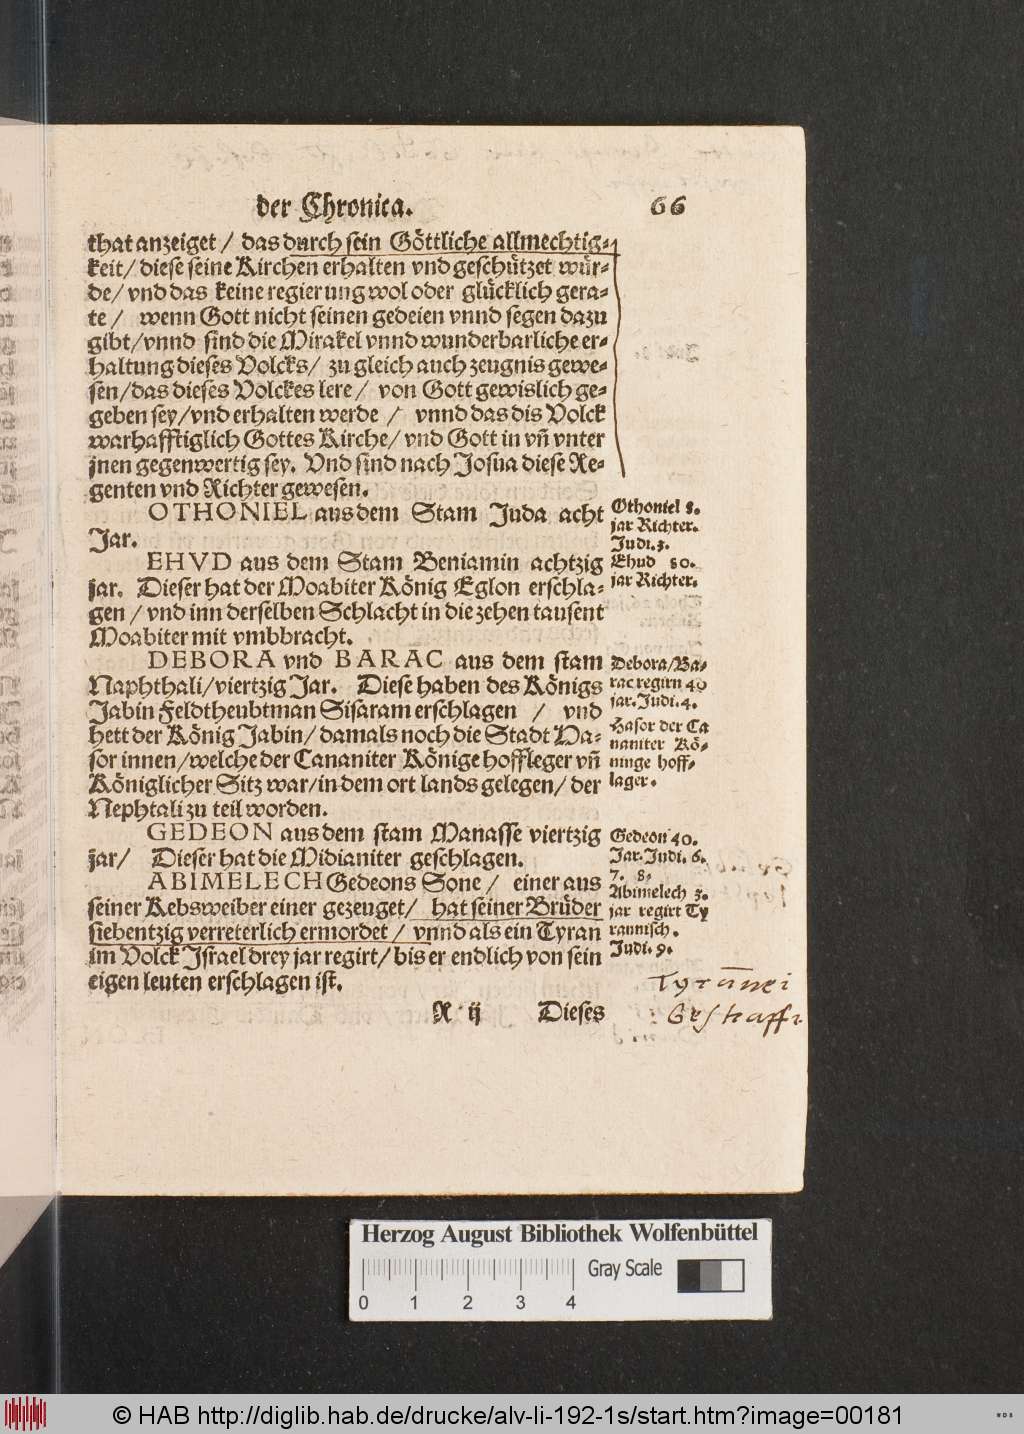 der Chronica. 66
that anzeiget / das durch sein Göttliche allmechtig-
keit / diese seine Kirchen erhalten vnd geschützet wür-
de / vnd das keine regierung wol oder glücklich gera-
te / wenn Gott nicht seinen gedeien vnnd segen dazu
gibt / vnnd sind die Mirakel vnnd wunderbarliche er-
haltung dieses Volcks / zu gleich auch zeugnis gewe-
sen / das dieses Volckes lere / von Gott gewislich ge-
geben sey / vnd erhalten werde / vnnd das dis Volck
warhafftiglich Gottes Kirche / vnd Gott in vñ vnter
jnen gegenwertig sey. Vnd sind nach Josua diese Re-
genten vnd Richter gewesen.
OTHONIEL aus dem Stam Juda acht
Jar.
EHVD aus dem Stam Beniamin achtzig
jar. Dieser hat der Moabiter König Eglon erschla-
gen / vnd inn derselben Schlacht in die zehen tausent
Moabiter mit vmbbracht.
DEBORA vnd BARAC aus dem stam
Naphthali / viertzig Jar. Diese haben des Königs
Jabin Feldtheubtman Sisaram erschlagen / vnd
hett der König Jabin / damals noch die Stadt Ha-
sor innen / welche der Cananiter Könige hoffleger vñ
Königlicher Sitz war / in dem ort lands gelegen / der
Nephtali zu teil worden.
GEDEON aus dem stam Manasse viertzig
jar / Dieser hat die Midianiter geschlagen.
ABIMELECH Gedeons Sone / einer aus
seiner Kebsweiber einer gezeuget / hat seiner Brüder
siebentzig verreterlich ermordet / vnnd als ein Tyran
im Volck Jsrael drey jar regirt / bis er endlich von sein
eigen leuten erschlagen ist.
R ij Dieses
Othoniel 8.
jar Richter.
Judi. 3.
Ehud 80.
jar Richter.
Debora / Ba-
rac regirn 40
jar. Judi. 4.
Hasor der Ca
naniter Kö-
ninge hoff-
lager.
Gedeon 40.
Jar. Judi. 6.
7. 8.
Abimelech 3.
jar regirt Ty
rannisch.
Judi. 9.
Tyrañei
Herzog August Bibliothek Wolfenbüttel
0 1 2 3 4
Gray Scale
© HAB http://diglib.hab.de/drucke/alv-li-192-1s/start.htm?image=00181